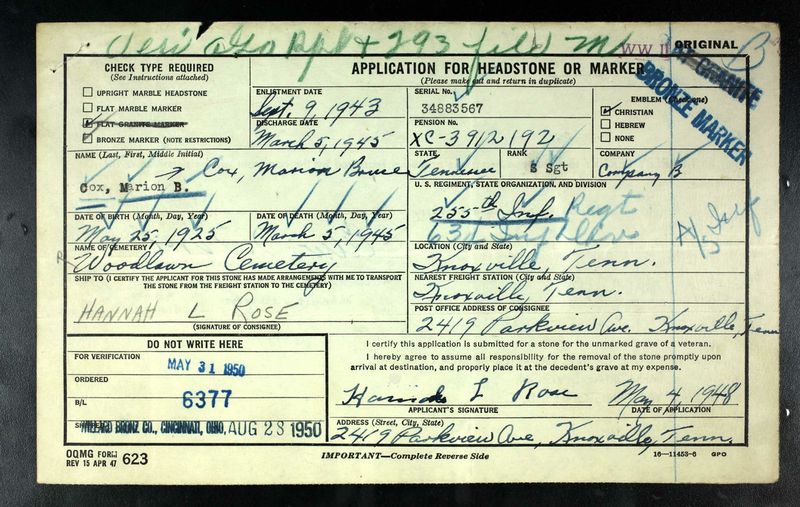 293 file
WW II
ORIGINAL
B
CHECK TYPE REQUIRED
(See Instructions attached)
UPRIGHT MARBLE HEADSTONE
FLAT MARBLE MARKER
FLAT GRANITE MARKER
BRONZE MARKER (NOTE RESTRICTIONS)
APPLICATION FOR HEADSTONE OR MARKER
(Please make out and return in duplicate)
ENLISTMENT DATE
Sept. 9, 1943
DISCHARGE DATE
March 5, 1945
SERIAL No.
34883567
PENSION No.
XC-3912192
EMBLEM (Check one)
CHRISTIAN
HEBREW
NONE
GRANITE
BRONZE MARKER
NAME (Last, First, Middle Initial)
Cox, Marion B.
Cox, Marion Bruce
STATE
Tennessee
RANK
S Sgt
COMPANY
Company B
U. S. REGIMENT, STATE ORGANIZATION, AND DIVISION
255th Inf. Regt
63d Inf Div
DATE OF BIRTH (Month, Day, Year)
May 25, 1925
DATE OF DEATH (Month, Day, Year)
March 5, 1945
NAME OF CEMETERY
Woodlawn Cemetery
LOCATION (City and State)
Knoxville, Tenn.
SHIP TO (I CERTIFY THE APPLICANT FOR THIS STONE HAS MADE ARRANGEMENTS WITH ME TO TRANSPORT
THE STONE FROM THE FREIGHT STATION TO THE CEMETERY)
HANNAH L ROSE
(SIGNATURE OF CONSIGNEE)
NEAREST FREIGHT STATION (City and State)
Knoxville, Tenn.
POST OFFICE ADDRESS OF CONSIGNEE
2419 Parkview Ave. Knoxville, Tenn
DO NOT WRITE HERE
FOR VERIFICATION
MAY 31 1950
ORDERED
B/L
6377
WILLARD BRONZ CO., CINCINNATI, OHIO, AUG 28 1950
I certify this application is submitted for a stone for the unmarked grave of a veteran.
I hereby agree to assume all responsibility for the removal of the stone promptly upon
arrival at destination, and properly place it at the decedent's grave at my expense.
Hannah L Rose
May 4, 1948
APPLICANT'S SIGNATURE
DATE OF APPLICATION
ADDRESS (Street, City, State)
2419 Parkview Ave, Knoxville, Tenn.
OQMG FORM
REV 15 APR 47
623
IMPORTANT—Complete Reverse Side
16—11453-6 GPO